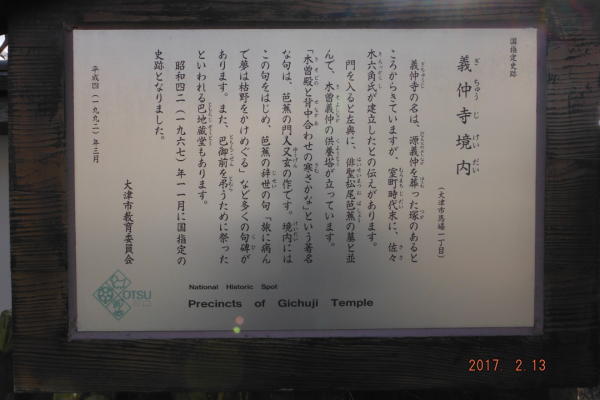 国指定史跡
義仲寺境内
ぎちゅうじけいだい
(大津市馬場一丁目)
義仲寺の名は、源義仲を葬った塚のあると
ころからきていますが、室町時代末に、佐々
木六角氏が建立したとの伝えがあります。
門を入ると左奥に、俳聖松尾芭蕉の墓と並
んで、木曽義仲の供養塔が立っています。
「木曽殿と背中合わせの寒さかな」という著名
な句は、芭蕉の門人又玄の作です。境内には
この句をはじめ、芭蕉の辞世の句「旅に病ん
で夢は枯野をかけめぐる」など多くの句碑が
あります。また、巴御前を弔うために祭った
といわれる巴地蔵堂もあります。
昭和四二(一九六七)年一一月に国指定の
史跡となりました。
平成四(一九九二)年三月
大津市教育委員会
OTSU
National Historic Spot
Precincts of Gichuji Temple
2017. 2.13